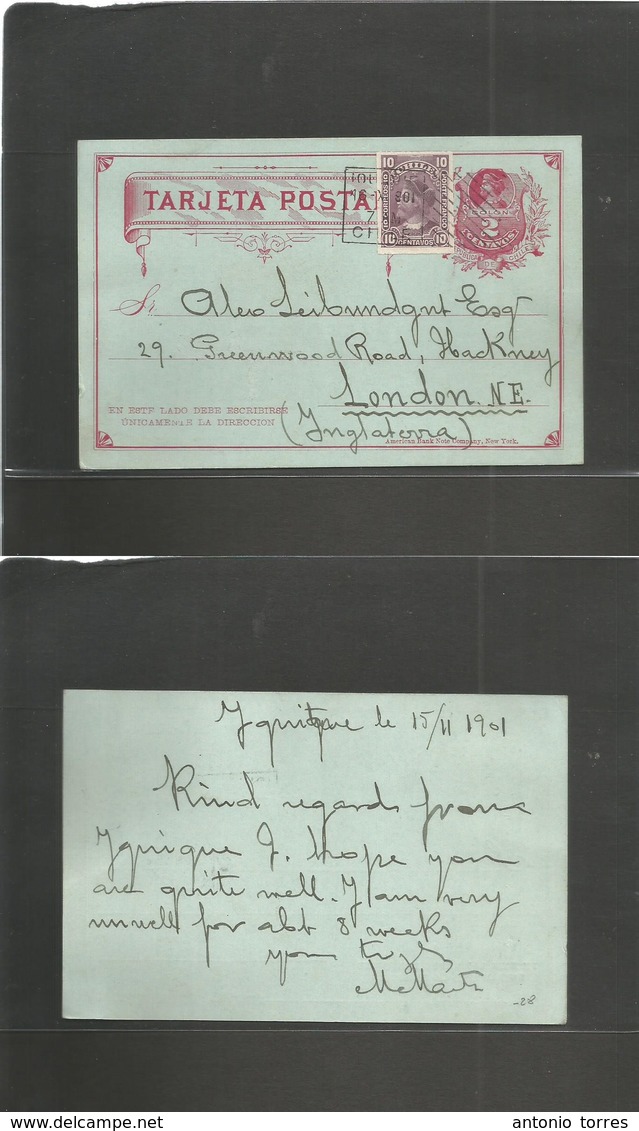 TARJETA POSTAL
10 CHILE 10
CORREOS
10 CENTAVOS 10
COLON
2
CENTAVOS
DE CHILE
Sr. Alex Leibundgut Esqr
29. Greenwood Road, Hackney
London. N.E.
(Inglaterra)
EN ESTE LADO DEBE ESCRIBIRSE
ÚNICAMENTE LA DIRECCION
American Bank Note Company, New York.
Iquique le 15/11 1901
Kind regards from
Iquique I hope you
are quite well. I am very
unwell for abt 8 weeks
-28
antonio torres